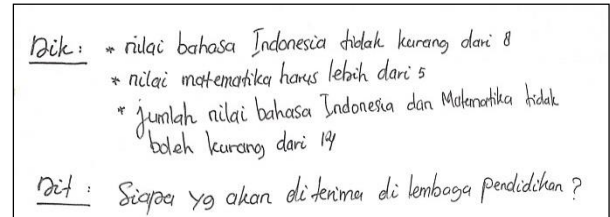 Dik : * nilai bahasa Indonesia tidak kurang dari 8
* nilai matematika harus lebih dari 5
* jumlah nilai bahasa Indonesia dan Matematika tidak
boleh kurang dari 14
Dit : Siapa yg akan di terima di lembaga pendidikan ?